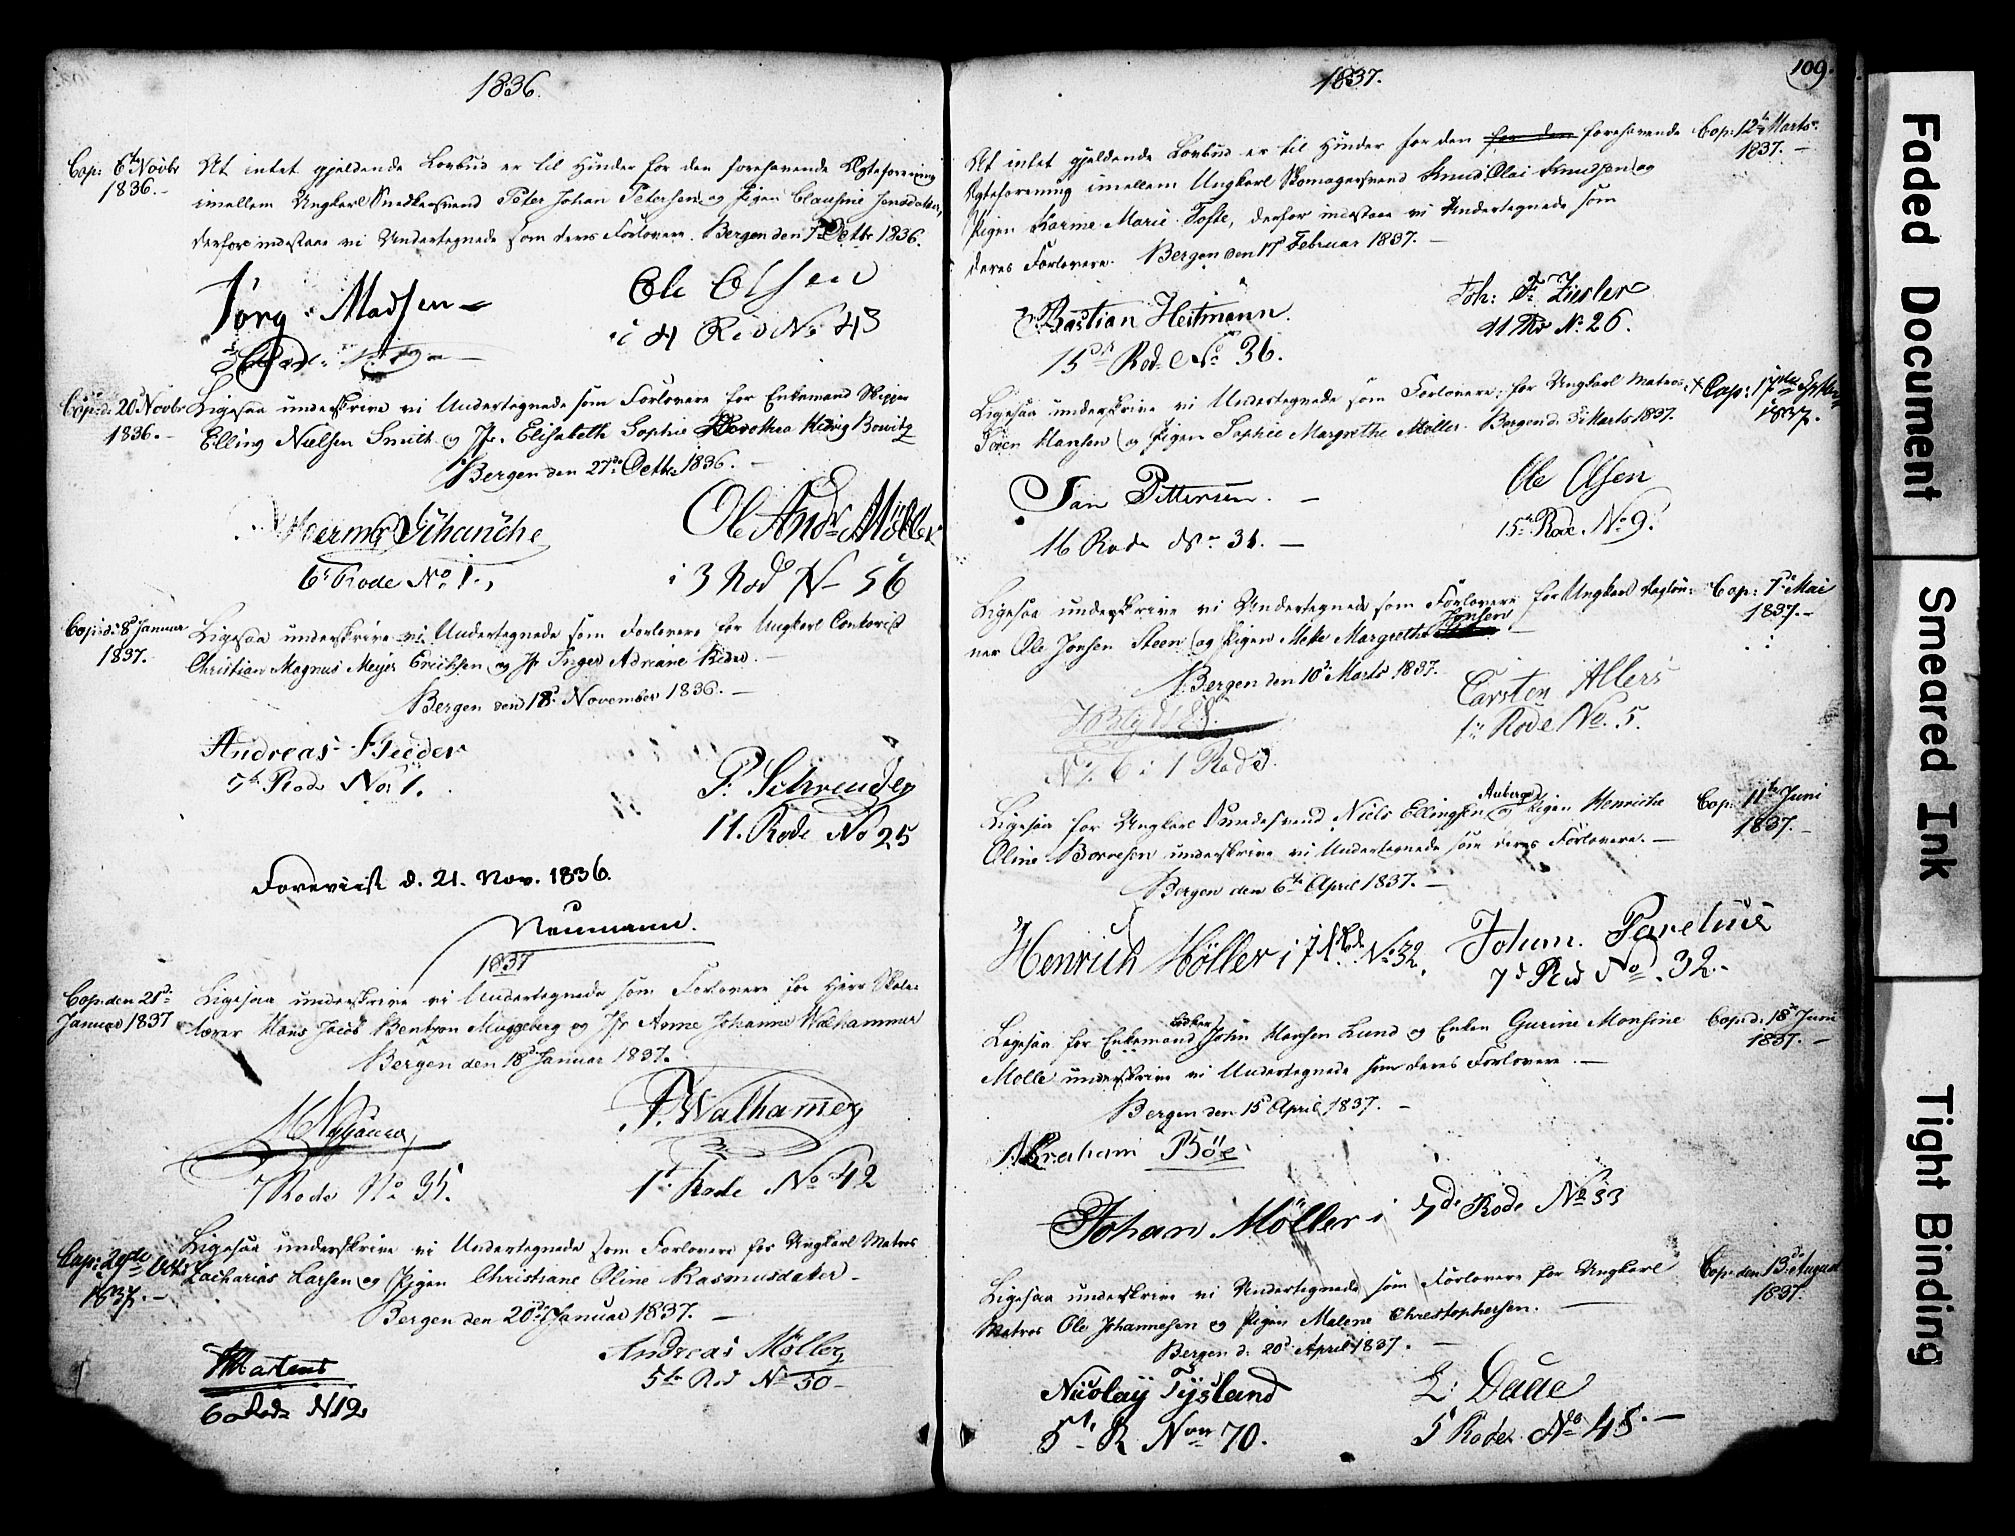 1836.
Cop: 6te Novbr
1836.-
At intet gjeldende Lovbud er til Hinder for den forehavende Ægteforening
imellem Ungkarl Snedkersvend Peter Johan Petersen og Pigen Clausine Jonsdatter,
derfor indestaae vi Undertegnede som deres Forlovere. Bergen den 7de Octbr 1836.
Jörg Madsen
Ole Olsen
i 4 Rod No 43
Cop: d: 20 Novbr
1836.-
Ligesaa underskrive vi Undertegnede som Forlovere for Enkemand Skipper
Elling Nielsen Smith og Jfr. Elisabeth Sophie Dorothea Hedvig Bowitz
Bergen den 27de Octbr 1836.-
Herman Schanche
6te Rode No 1.
Ole Andr. Möller
i 3 Rod No 56
Cop: d: 8de Januar
1837.
Ligesaa underskrive vi Undertegnede som Forlovere for Ungkarl Contorist
Christian Magnus Meyer Erichsen og Jfr Inger Adriane
Bergen den 18de November 1836.-
Andreas
5te Rode No: 1.
P. Schreuder
11. Rode No 25
Foreviist d. 21. Nov. 1836.
Neumann.
1837
Cop: den 21de
Januar 1837
Ligesaa underskrive vi Undertegnede som Forlovere for Herr Skole-
lærer Hans Jacob Bentzon Muggeberg og Jfr Anne Johanne Walhammer
Bergen den 18de Januar 1837.
7 Rode No 35.
A. Walhammer
1te Rode No 42
Cop: 29de Octbr
1837.-
Ligesaa underskrive vi Undertegnede som Forlovere for Ungkarl Matros
Zacharias Larsen og Pigen Christiane Oline Rasmusdatter-
Bergen den 20de Januar 1837.-
Martens
6 Rode N 12
Andreas Möller
5te Rod No 50-
109.
1837.
At intet gjeldende Lovbud er til Hinder for den for den forehavende
Ægteforening imellem Ungkarl Skomagersvend Knud Olai Knudsen og
Pigen Karine Marie Tofte, derfor indestaae vi Undertegnede som
deres Forlovere. Bergen den 17de Februar 1837.-
Cop: 12te Marts
1837.-
Bastian Heitmann.
15de Rode No 36.
Joh: F. Ziesler
11 Rd No 26.
Ligesaa underskrive vi Undertegnede som Forlovere for Ungkarl Matros
Sören Hansen og Pigen Sophie Margrethe Möller. Bergen d. 3de Marts 1837.
Cop: 17de Septbr
1837.
Jan Pettersen.-
16 Rode No 31.-
Ole Olsen
15te Rode. No 9.
Ligesaa underskrive vi Undertegnede som Forlovere for Ungkarl Dagløn-
ner Ole Jonsen Steen og Pigen Meke Margrethe Jonsen
Bergen den 10de Marts 1837.
Cop: 7de Mai
1837.-
No 6 i 1 Rode.
Carsten Allers
1te Rode No. 5.
Ligesaa for Ungkarl Smedesvend Niels Ellingsen Auberg og Pigen Henricke
Oline Borresen underskrive vi Undertegnede som deres Forlovere.-
Bergen den 6te April 1837.-
Cop: 11te Juni
1837.-
Henrich Möller i 7de Rd. No: 32.
Johan. Parelius
7d Rod No. 32.-
Ligesaa for Enkemand Bödker John Hansen Lund og Enken Gurine Monsine
Molle underskrive vi Undertegnede som deres Forlovere.-
Bergen den 15de April 1837.-
Cop: d: 18de Juni
1837.-
Abraham Böe
Johan Möller i 7de Rode No 33
Ligesaa underskrive vi Undertegnede som Forlovere for Ungkarl
Matros Ole Johannesen og Pigen Malene Christophersen.-
Bergen d: 20de April 1837.-
Cop: den 13de August
1837.
Nicolaÿ Tÿsland
5te R Non 70.
L: Daae
5 Rode No 45.-
Faded Document
Smeared Ink
Tight Binding